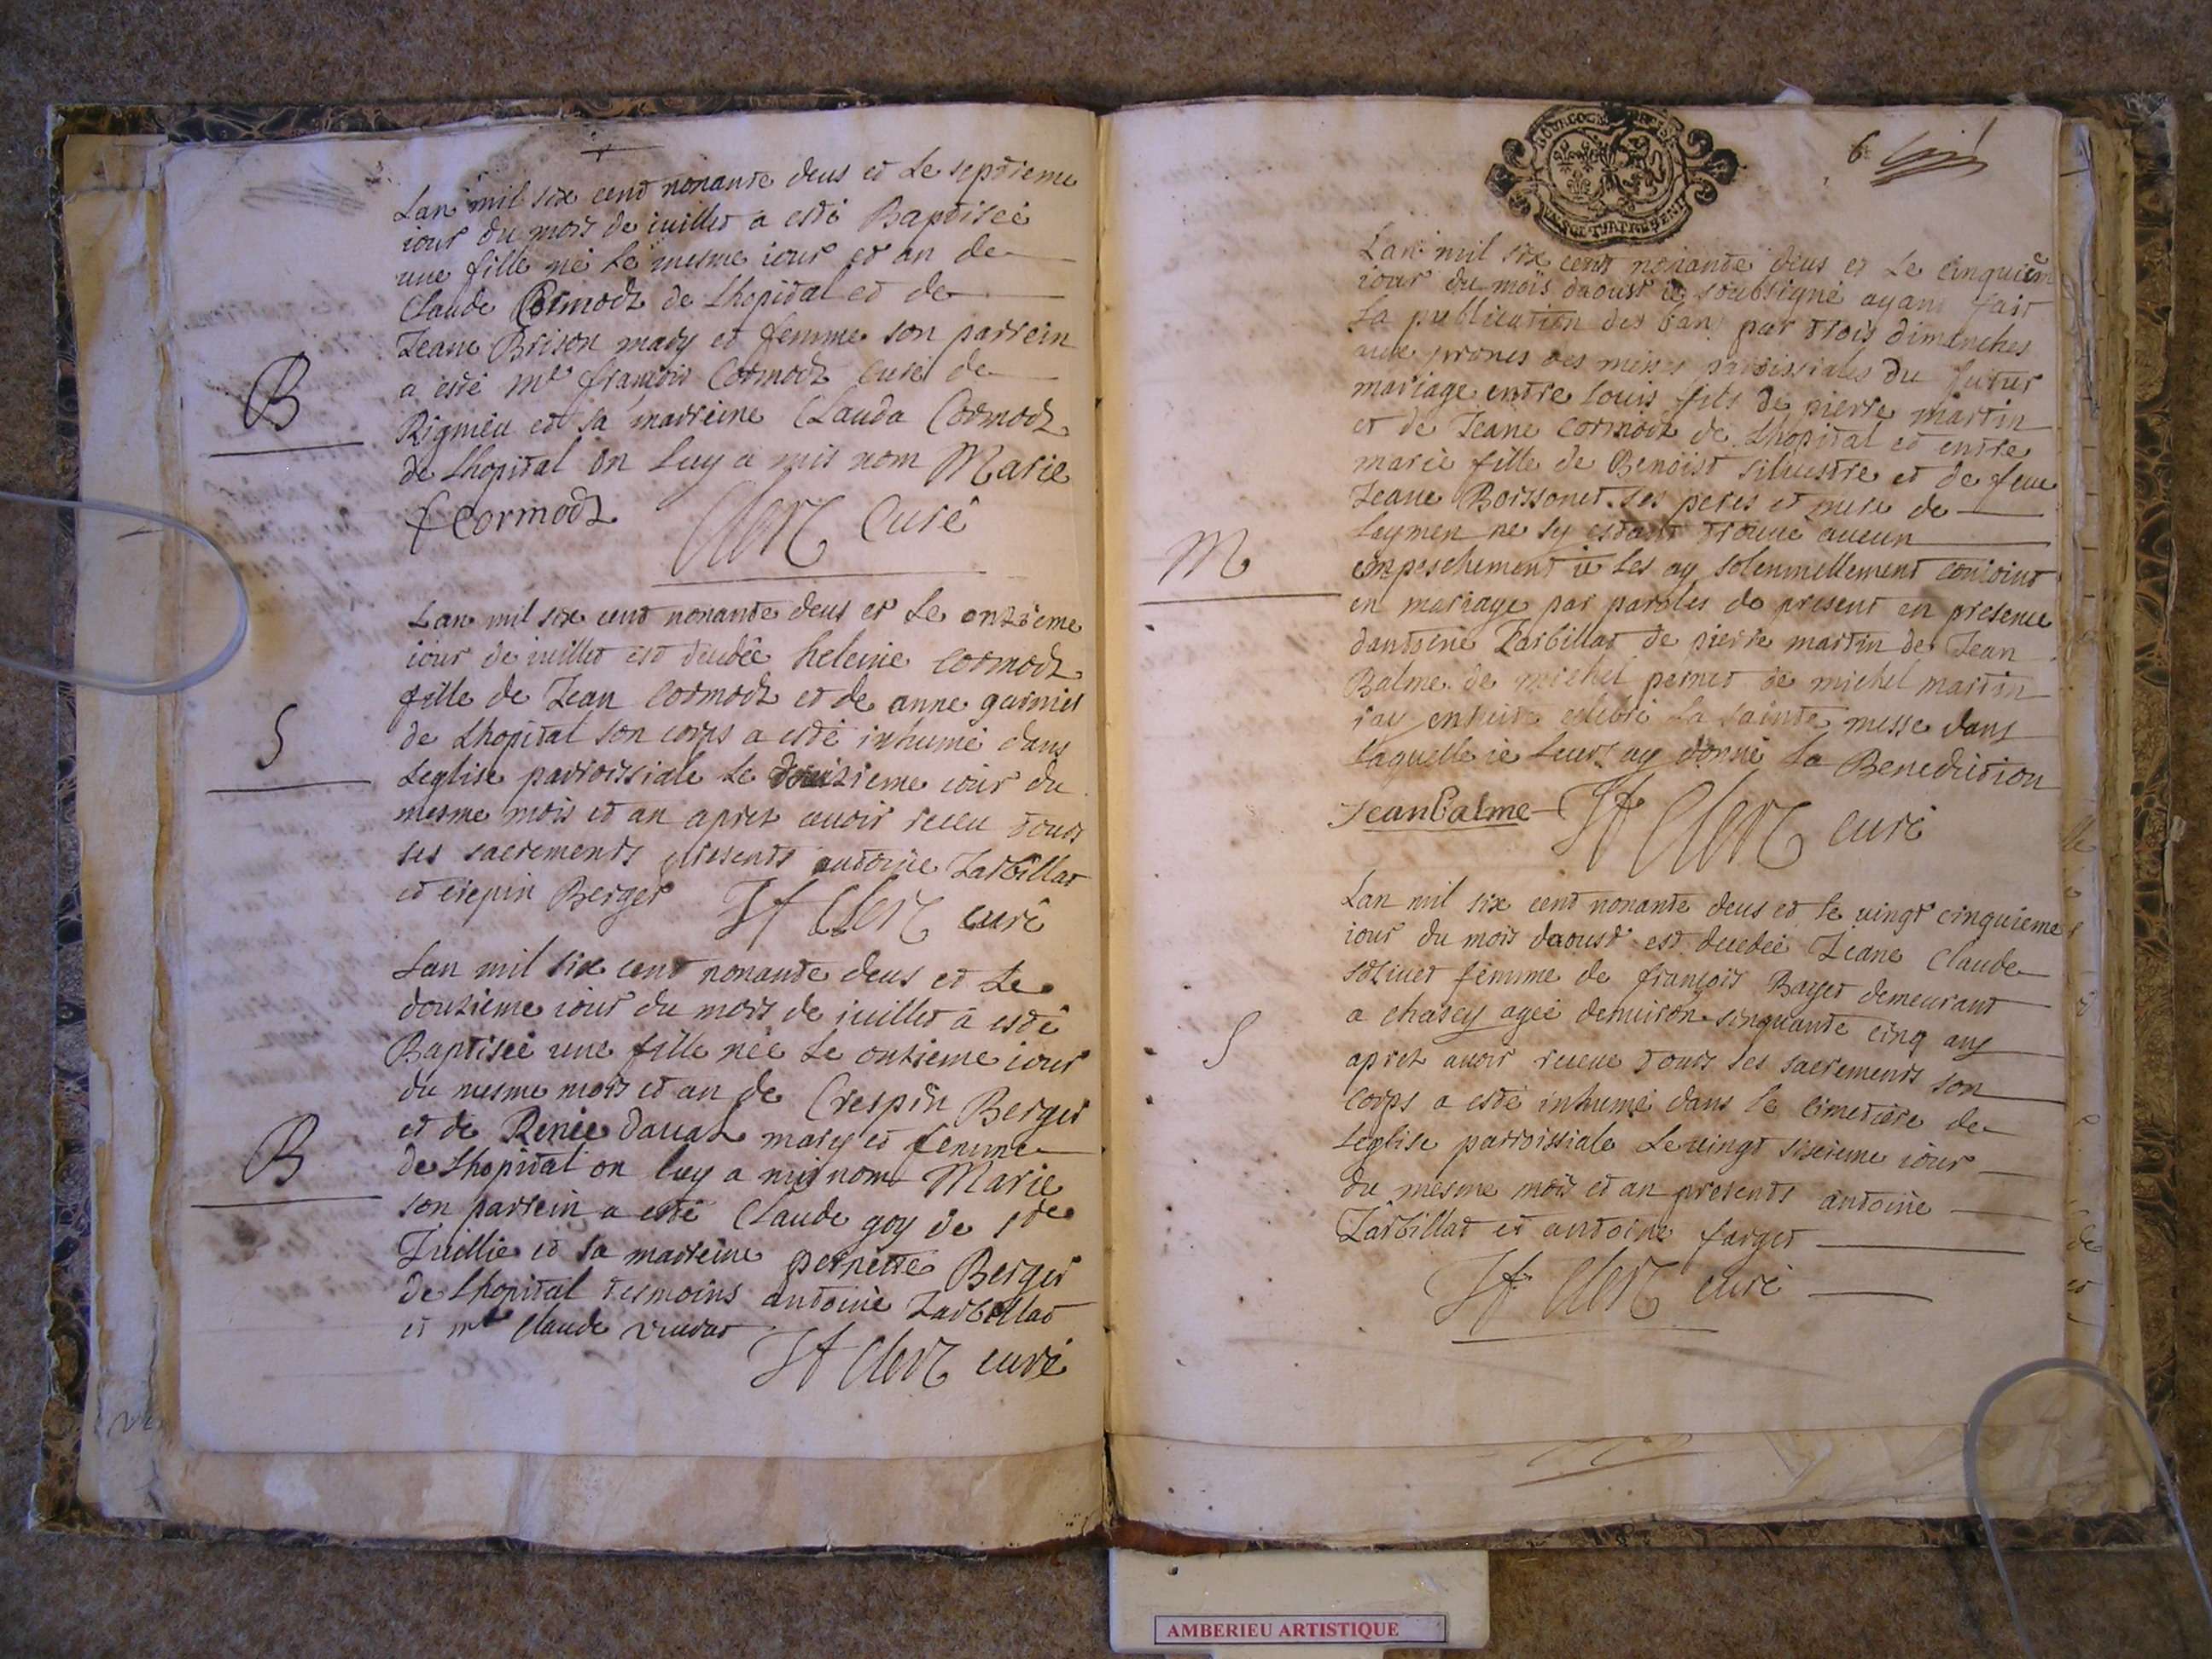 Lan mil six cent nonante deus et Le septieme
iour du mois de iuillet a esté Baptiseé
une fille né Le mesme iour et an de
Claude Cormodz de Lhopital et de
Jeane Brison mary et femme son parrein
a esté mre françois Cormodz Curé de
Rignieu et sa marreine Clauda Cormodz
B
de Lhopital on Luy a mis nom Marie
f Cormodz Clerc Curé
Lan mil six cent nonante deus et Le onzieme
iour de iuillet est decedée heleine Cormodz
fille de Jean Cormodz et de anne garnier
de Lhopital son corps a esté inhumé dans
S
Leglise parroissiale Le douzieme iour du
mesme mois et an apres avoir receu tous
ses sacrements presents antoine Jarbillat
et crepin Berger Jf Clerc curé
Lan mil six cent nonante deus et Le
douzieme iour du mois de iuillet a esté
Baptiseé une fille née Le onzieme iour
du mesme mois et an de Crespin Berger
et de Reneé davat mary et femme
B
de Lhopital on luy a mis nom Marie
son parrein a esté Claude goy de ste
Jullie et sa marreine pernette Berger
de Lhopital tesmoins antoine Jarbillat
et mre Claude
Jf Clerc curé
BOURGOGNE BRESSE
6
Lan mil six cent nonante deus et Le cinquiem
iour du mois daoust ie soubsigné ayant fait
La publication des bans par trois dimenches
aux prones des messes parroissiales du futur
mariage entre Louis fils de pierre martin
et de Jeane Cormodz de Lhopital et entre
marie fille de Benoist silvestre et de feue
Jeane Boissonet ses peres et mere de
Leymen ne sy estant trouvé aucun
M
empeschement ie Les ay solennellement conioint
en mariage par paroles de present en presence
dantoine Jarbillat de pierre martin de Jean
Balme de michel pernet de michel martin
iay ensuite celebré La sainte messe dans
Laquelle ie Leurs ay donné La Benediction
Jean balme Jf Clerc curé
Lan mil six cent nonante deus et le vingt cinquieme
iour du mois daoust est decedeé Jeane Claude
femme de françois Bayet demeurant
a chasey ageé denviron sinquante cinq ans
S
apres avoir receue tous ses sacrements son
Corps a esté inhumé dans le cimetiere de
Leglise parroissiale Le vingt sixieme iour
du mesme mois et an presents antoine
Jarbillat et antoine farget
Jf Clerc curé
AMBERIEU ARTISTIQUE